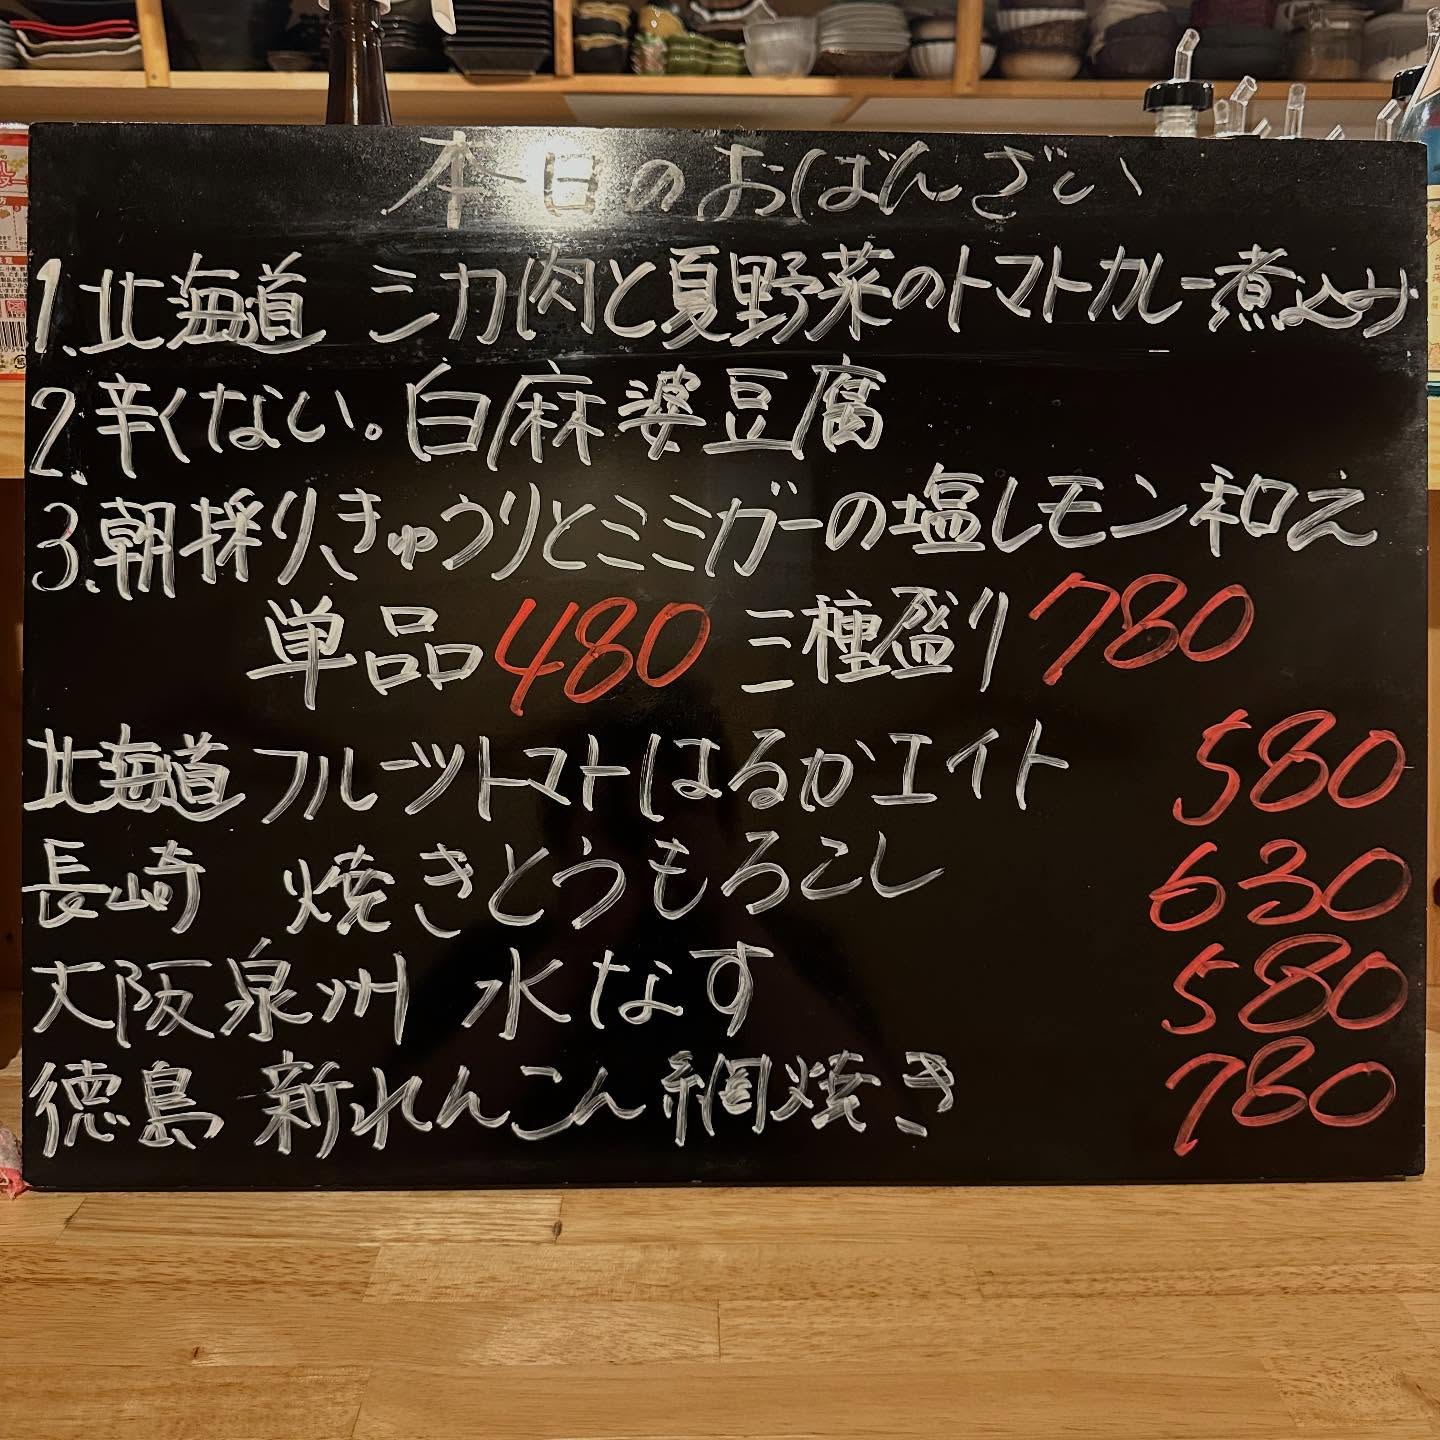 本日のおばんざい
1.北海道 シカ肉と夏野菜のトマトカレー煮込み
2.辛くない。白麻婆豆腐
3.朝採りきゅうりとミミガーの塩レモン和え
単品480 三種盛り780
北海道 フルーツトマトはるかエイト 580
長崎 焼きとうもろこし 630
大阪泉州 水なす 580
徳島 新れんこん網焼き 780